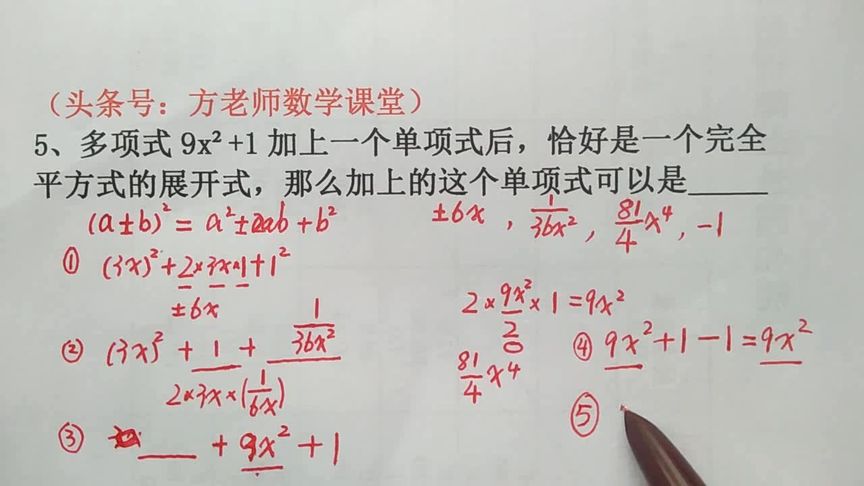 （头条号：方老师数学课堂）
5、多项式 9x²+1 加上一个单项式后，恰好是一个完全
平方式的展开式，那么加上的这个单项式可以是_____
(a±b)² = a²±2ab+b²
±6x , 1/36x² , 81/4 x⁴ , -1
① (3x)²+2×3x×1+1²
±6x
② (3x)² + 1 + 1/36x²
2×3x×(1/6x)
③ ___ + 9x² + 1
2× 9x²/2 ×1 =9x²
81/4 x⁴
④ 9x²+1-1=9x²
⑤